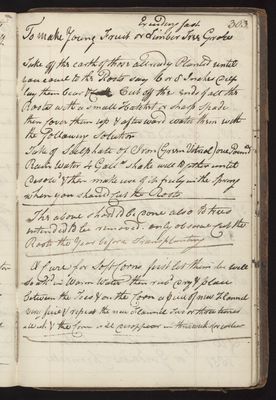 Exceedingly fast 303
To make Young Fruit or Timber Trees Grow
Take off the earth of those allready Planted until
you come to the Roots say 6 or 8 Inches deep
lay them bear Cut off the ends of all the
Roots with a small Hatchet or sharp spade
then cover them up & afterward water them with
the following Solution
Take of Sulphate of Iron (Green Vitriol) one Pound
Rain Water 20 Gallns shake well together untill
desolvd & then make use of it freely in the Spring
when you should cut the Roots
The above should be done also to trees
intended to be removed. only at some cut the
Roots the Year before Transplanting
A Cure for Soft Corns first let them be well
Soak'd in Warm Water then rub dry & place
between the Toes & on the Corn a piece of new Flannel
very fine & repeat the new Flannel two or three times
a Week & the Corn will disappear in three weeks or sooner